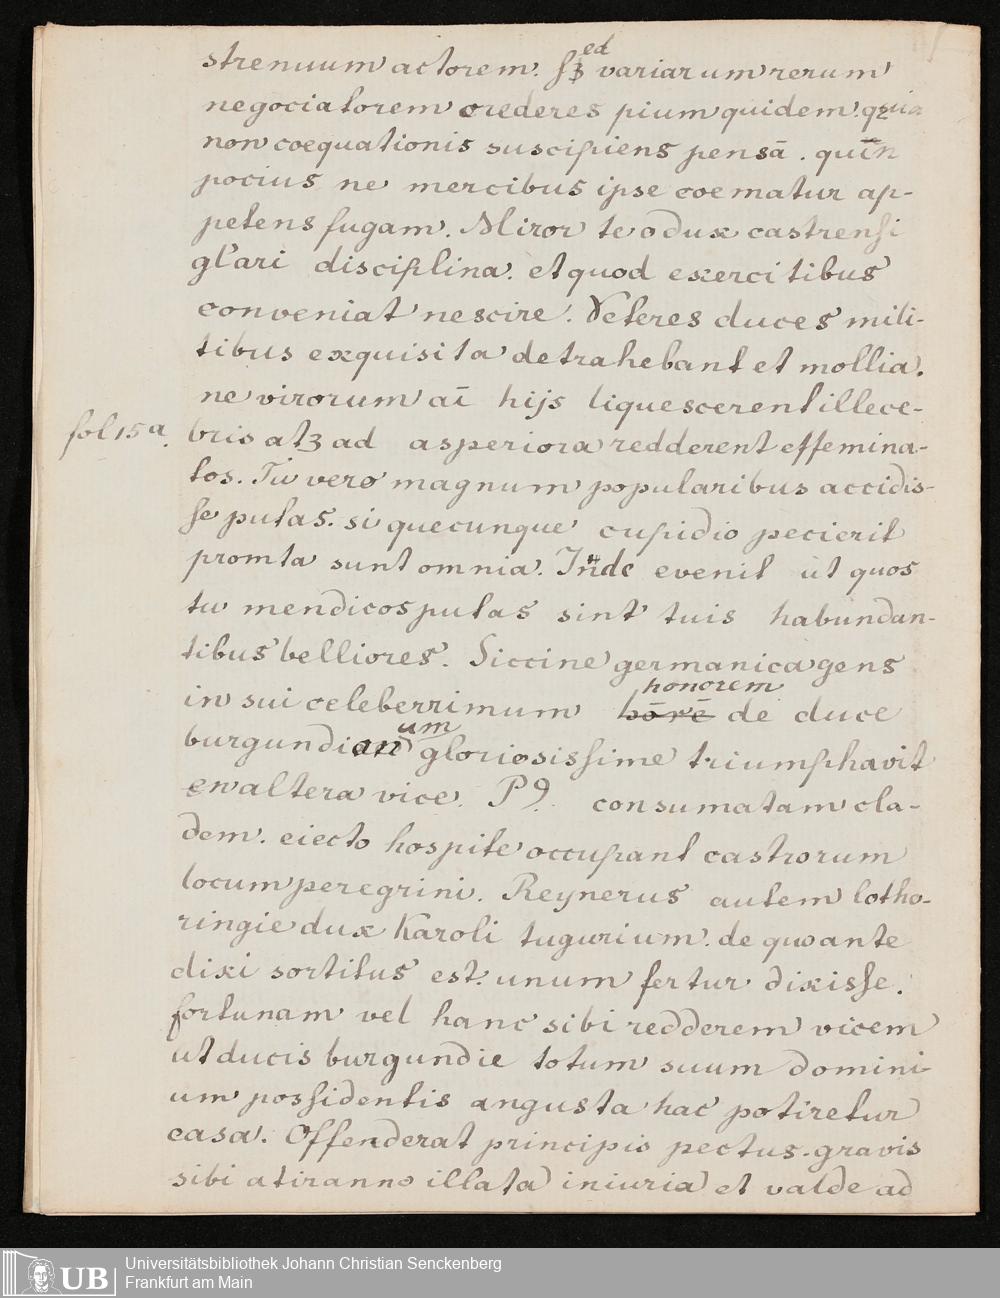 strenuum actorem. sꝫ ed variarum rerum
negociatorem crederes pium quidem. quia
non coequationis suscipiens pensā. quīn
pocius ne mercibus ipse coematur ap-
petens fugam. Miror te o dux castrensi
gl'ari disciplina. et quod exercitibus
conveniat nescire. Veteres duces mili-
tibus exquisita detrahebant et mollia.
ne virorum aī hijs liquescerent illece-
fol 15 a. bris atꝫ ad asperiora redderent effemina-
tos. Tu vero magnum popularibus accidis-
se putas. si quecunque cupidio pecierit
promta sunt omnia. Inde evenit ut quos
tu mendicos putas sint tuis habundan-
tibus belliores. Siccine germanica gens
in sui celeberrimum hōrē honorem de duce
burgundian um gloriosissime triumphavit
en altera vice. Pꝯ. consumatam cla-
dem. eiecto hospite occupant castrorum
locum peregrini. Reynerus autem lotho-
ringie dux Karoli tugurium. de quo ante
dixi sortitus est. unum fertur dixisse.
fortunam vel hanc sibi redderem vicem
ut ducis burgundie totum suum domini-
um possidentis angusta hac potiretur
casa. Offenderat principis pectus. gravis
sibi a tiranno illata iniuria et valde ad
UB Universitätsbibliothek Johann Christian Senckenberg
Frankfurt am Main